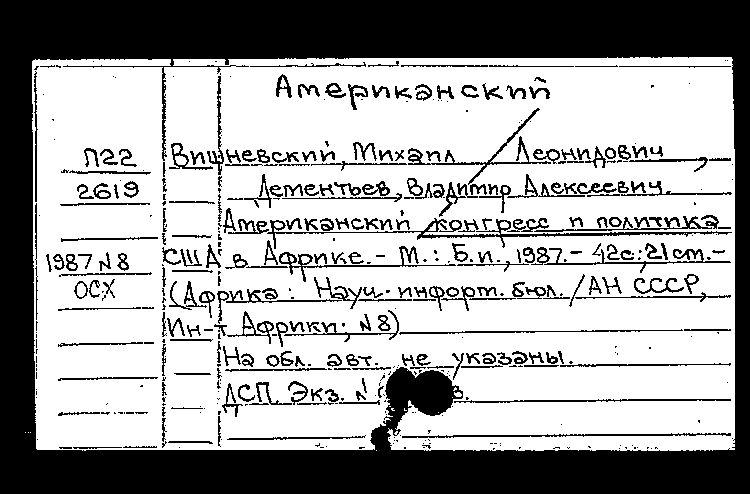 Американский
П22 Вишневский, Михаил Леонидович,
2619 Дементьев, Владимир Алексеевич.
Американский конгресс и политика
1987 N8 США в Африке. - М.: Б.и., 1987. - 42с.; 21 cm. -
ОСХ (Африка: Науч.-информ. бюл. / АН СССР,
Ин-т Африки; N8)
На обл. авт. не указаны.
ДСП. Экз. N